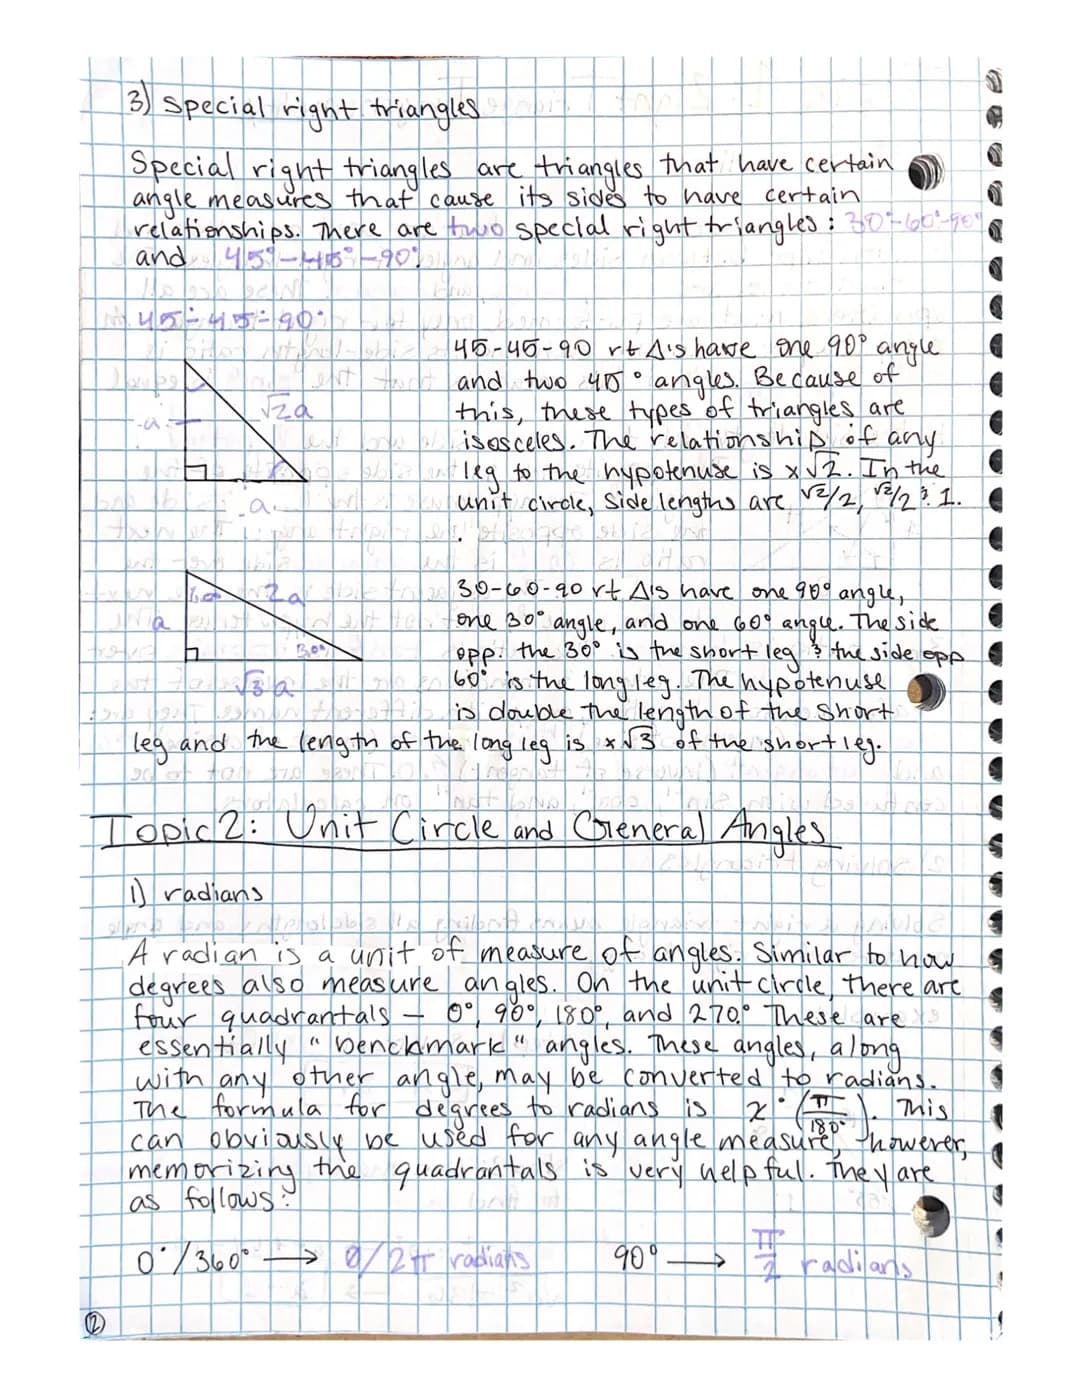 3) Special right triangles
Special right triangles are triangles that have certain
angle measures that cause its sides to have certain
relationships. There are two special right triangles: 30°-60°-90°
and 45°-45°-90°.
45°-45°-90°
45-45-90 rt Δ's have one 90° angle
and two 45° angles. Because of
this, these types of triangles are
isosceles. The relationship of any
leg to the hypotenuse is x√2. In the
unit circle, side lengths are √2/2, √2/2 & 1.
√2a
a
a
30-60-90 rt Δ's have one 90° angle,
one 30° angle, and one 60° angle. The side
opp. the 30° is the short leg & the side opp
60° is the long leg. The hypotenuse
is double the length of the short
leg and the length of the long leg is x√3 of the short leg.
60°
2a
a
30°
√3a
Topic 2: Unit Circle and General Angles
1) radians
A radian is a unit of measure of angles. Similar to how
degrees also measure angles. On the unit circle, there are
four quadrantals – 0°, 90°, 180°, and 270°. These are
essentially "benckmark" angles. These angles, along
with any other angle, may be converted to radians.
The formula for degrees to radians is x°(π/180°). This
can obviously be used for any angle measure, however,
memorizing the quadrantals is very helpful. They are
as follows:
0°/360° → 0/2π radians 90° → π/2 radians
2